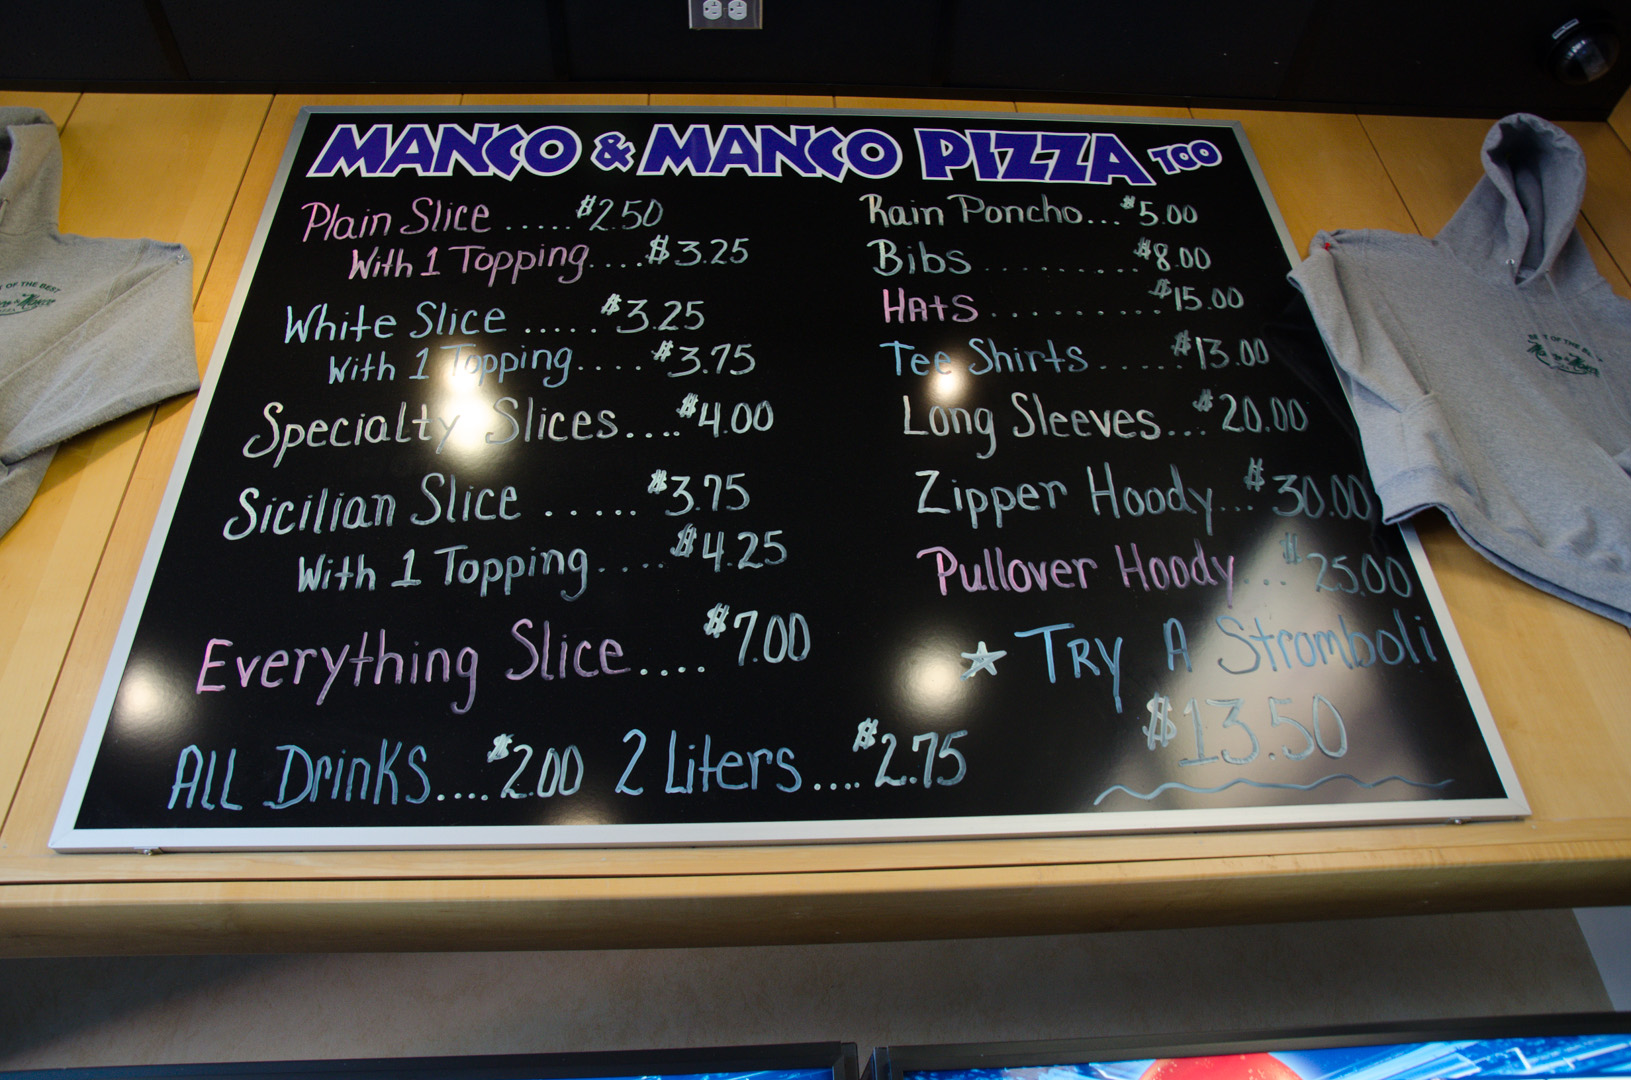 MANCO & MANCO PIZZA TOO
Plain Slice ..... $2.50
With 1 Topping.... $3.25
White Slice ..... $3.25
With 1 Topping.... $3.75
Specialty Slices.... $4.00
Sicilian Slice ..... $3.75
With 1 Topping.... $4.25
Everything Slice.... $7.00
ALL DrinKS.... $2.00 2 Liters.... $2.75
Rain Poncho... $5.00
Bibs ......... $8.00
HAtS .......... $15.00
Tee Shirts ..... $13.00
Long Sleeves... $20.00
Zipper Hoody... $30.00
Pullover Hoody... $25.00
TRY A Stromboli
$13.50
OF THE BEST
OF THE